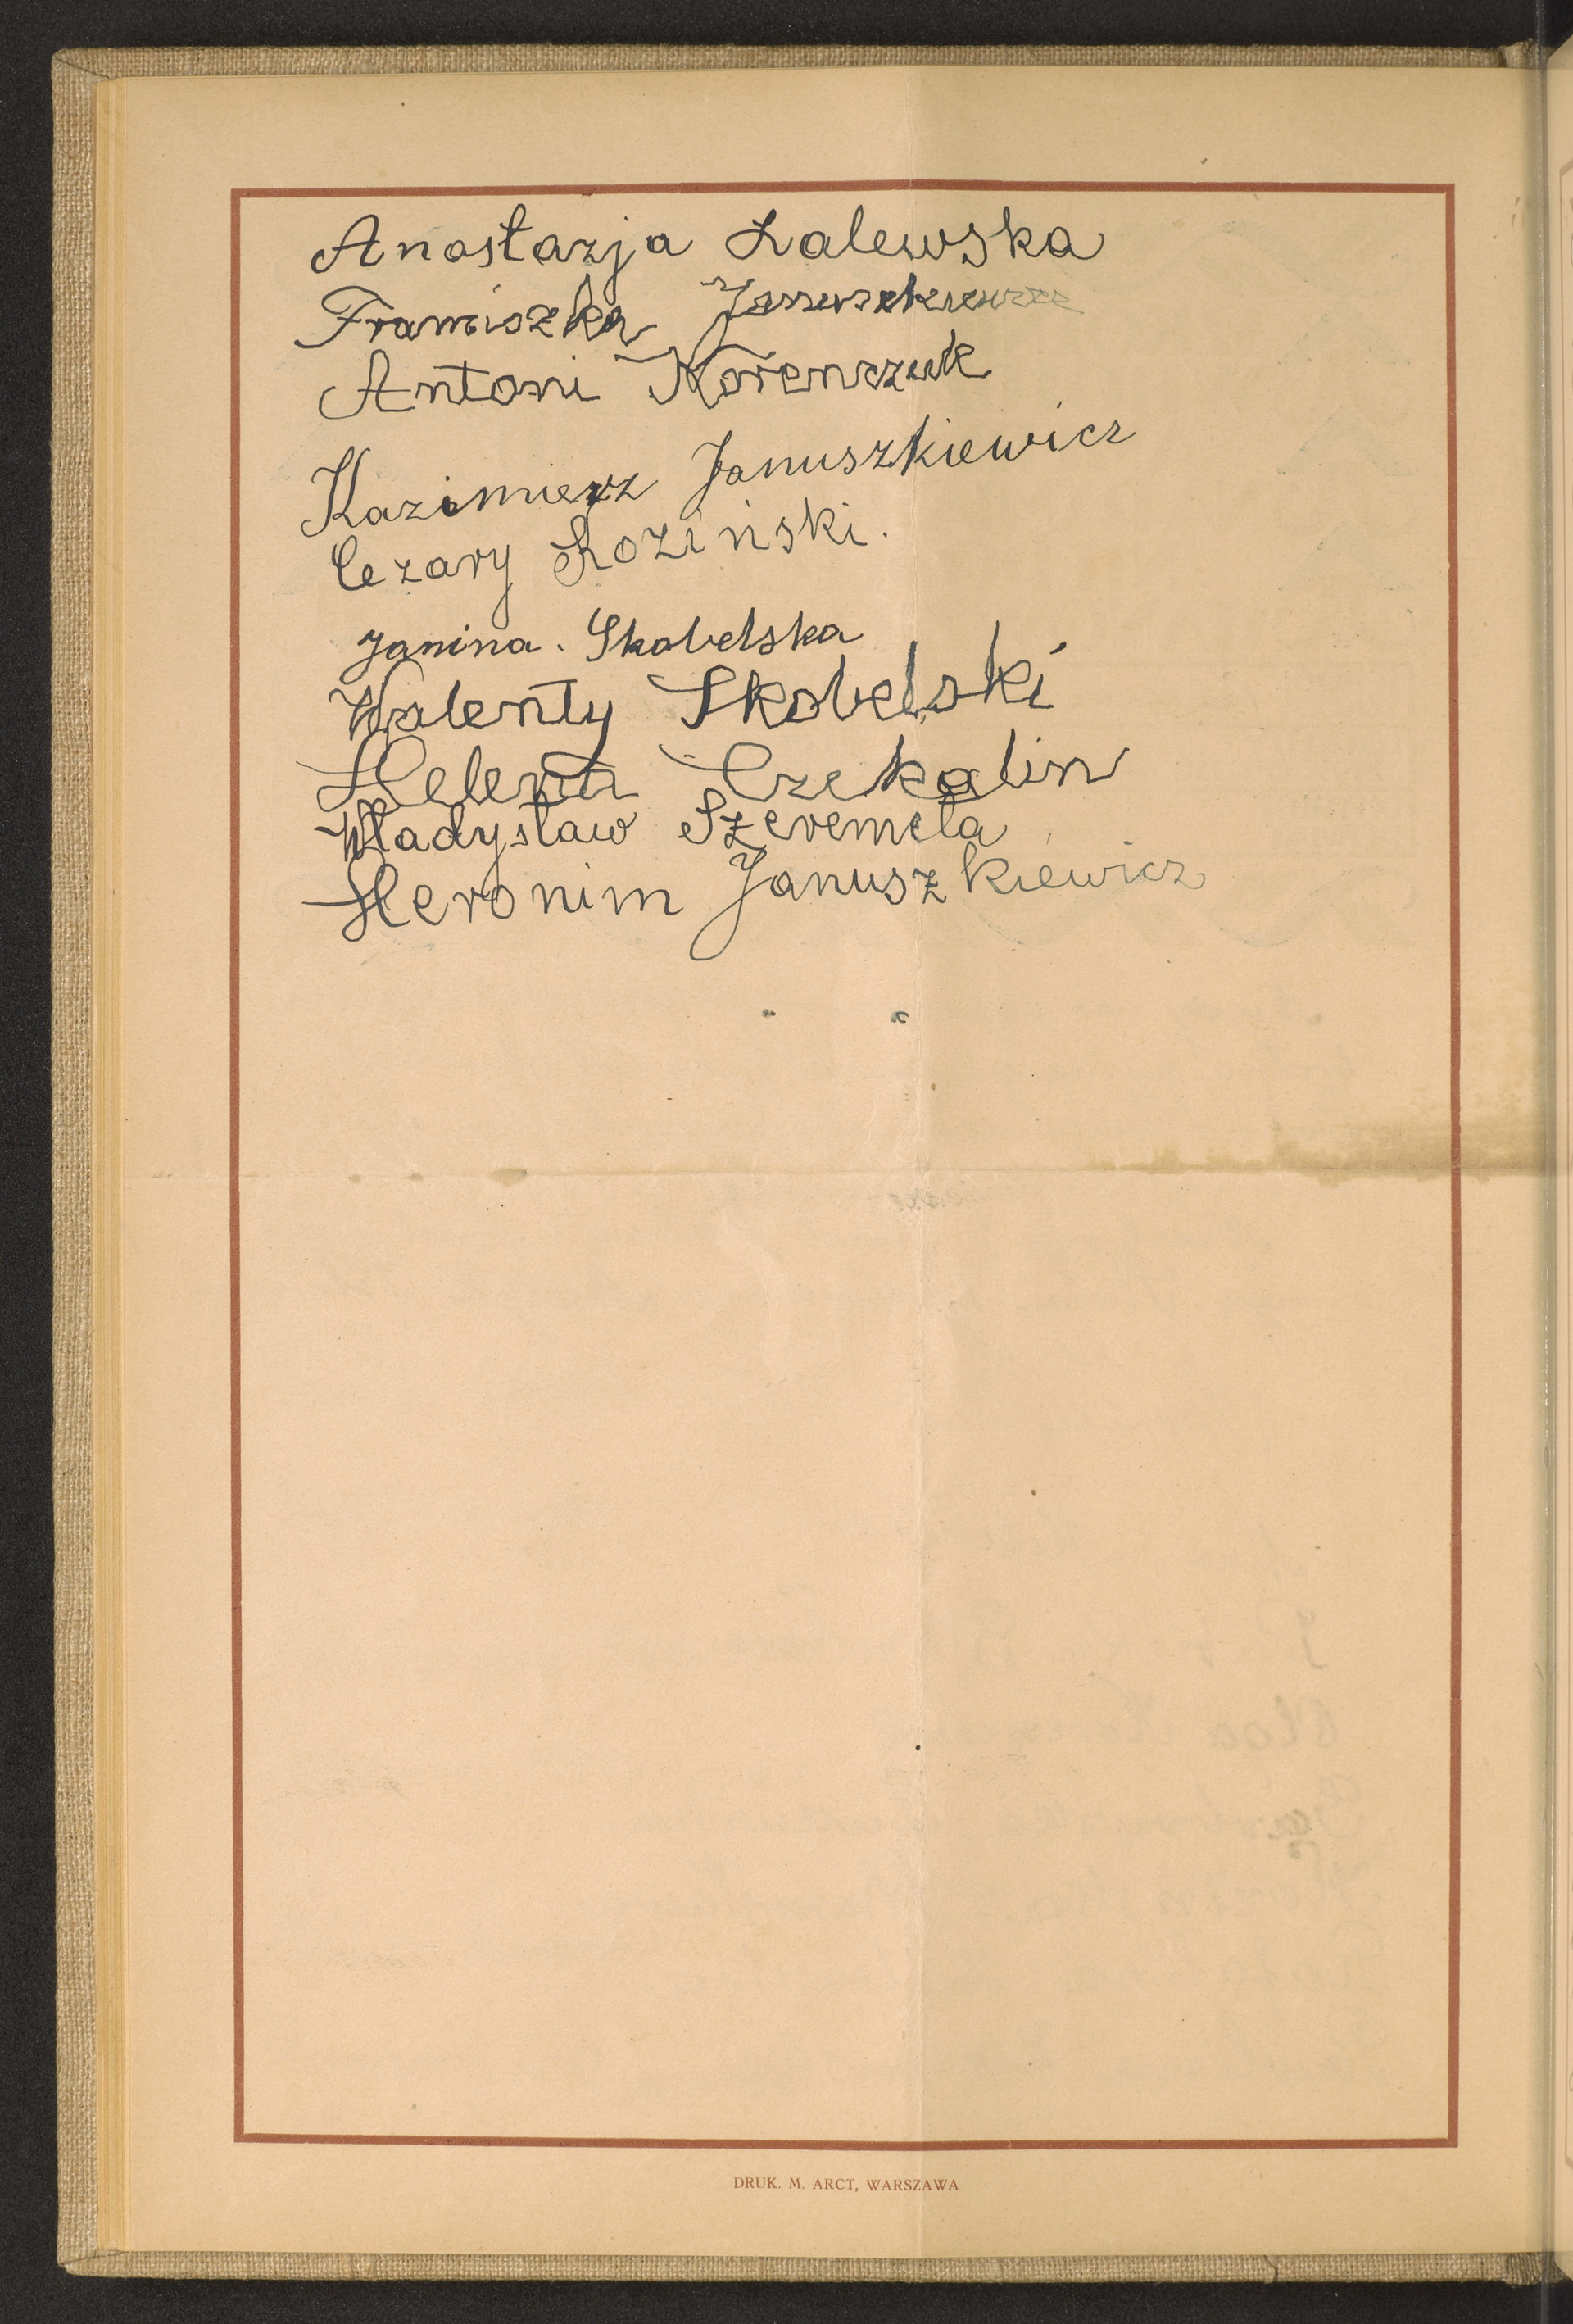 Anastazja Zalewska
Franciszka Januszkiewicz
Antoni Korenczuk
Kazimierz Januszkiewicz
Cezary Roziński.
Janina. Skobelska
Walenty Skobelski
Helena Czekalin
Władysław Szeremeta
Heronim Januszkiewicz
DRUK. M. ARCT, WARSZAWA